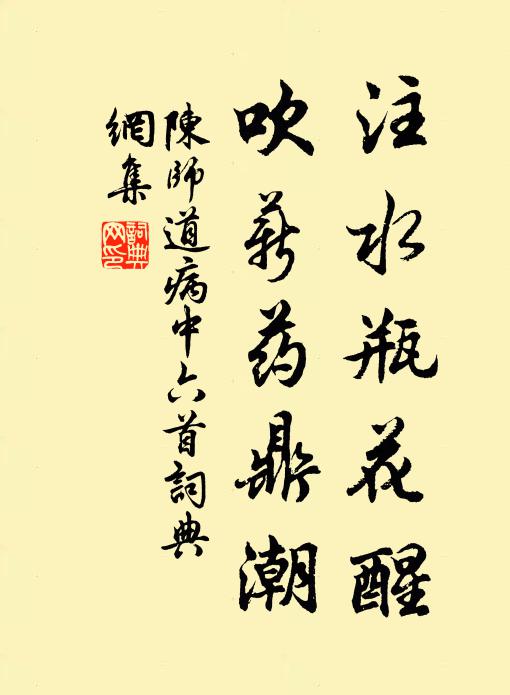 注水瓶花醒
吹薪药鼎潮
陳師道病中六首詞典
網集
詞典
网印